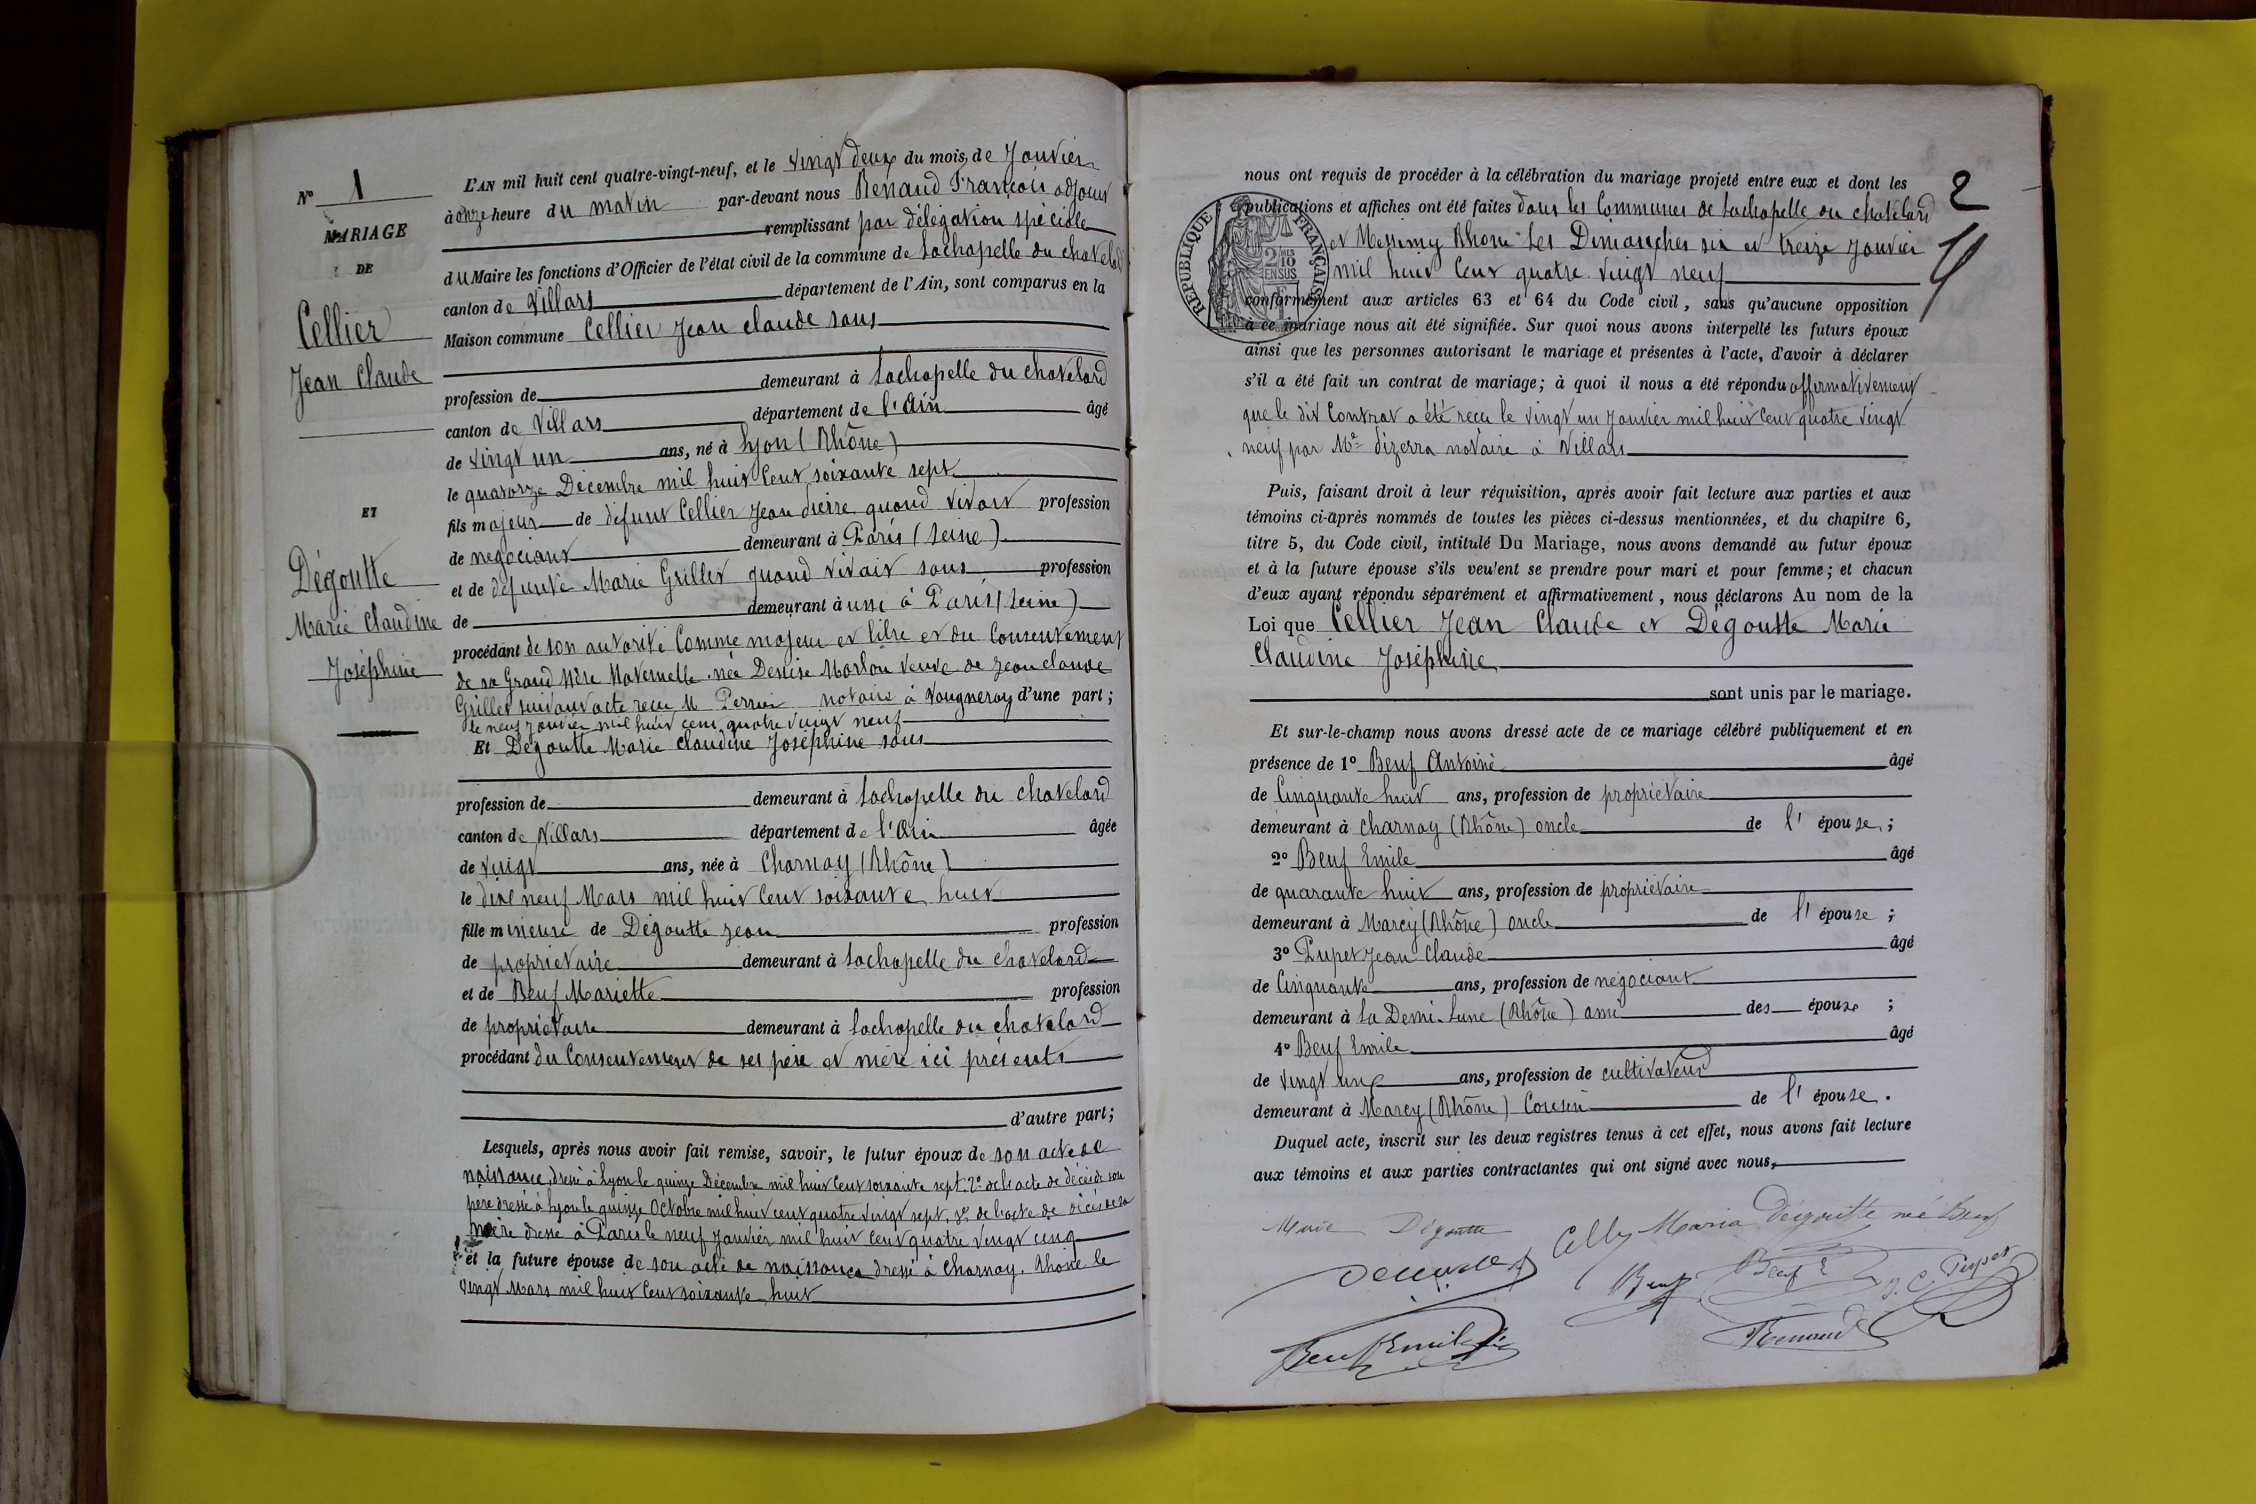 N° 1
MARIAGE
DE
Cellier
Jean Claude
ET
Dégoutte
Marie Claudine
Joséphine
L'AN mil huit cent quatre-vingt-neuf, et le vingt deux du mois, de Janvier
à onze heure du matin par-devant nous Renaud François adjoint
remplissant par délégation spéciale
du Maire les fonctions d'Officier de l'état civil de la commune de Lachapelle du chatelard
canton de Villars département de l'Ain, sont comparus en la
Maison commune Cellier Jean Claude sans
profession de demeurant à Lachapelle du chatelard
canton de Villars département de l'Ain âgé
de vingt un ans, né à Lyon (Rhône)
le quatorze Décembre mil huit cent soixante sept
fils majeur de défunt Cellier Jean Pierre quand vivait profession
de négociant demeurant à Paris (Seine)
et de défunte Marie Grillet quand vivait sans profession
de demeurant à à Paris (Seine)
procédant de son autorité comme majeur et libre et du consentement
de sa Grand Mère Maternelle née Denise Morlon veuve de Jean claude
Grillet suivant acte recu M Perrier notaire à Vaugneray d'une part;
le neuf janvier mil huit cent quatre vingt neuf
Et Dégoutte Marie Claudine Joséphine sans
profession de demeurant à Lachapelle du chatelard
canton de Villars département de l'Ain âgée
de vingt ans, née à Charnay (Rhône)
le dix neuf Mars mil huit cent soixante huit
fille mineure de Dégoutte Jean profession
de propriétaire demeurant à Lachapelle du chatelard
et de Beuf Mariette profession
de propriétaire demeurant à Lachapelle du chatelard
procédant du consentement de ses père et mère ici présents
d'autre part;
Lesquels, après nous avoir fait remise, savoir, le futur époux de son acte de
naissance, dressé à Lyon le quinze Décembre mil huit cent soixante sept. 2° de l'acte de décès de son
père dressé à Lyon le quinze Octobre mil huit cent quatre vingt sept. 3° de l'acte de décès de sa
mère dressé à Paris le neuf Janvier mil huit cent quatre vingt cinq
et la future épouse de son acte de naissance dressé à Charnay, Rhône le
vingt Mars mil huit cent soixante huit
2
nous ont requis de procéder à la célébration du mariage projeté entre eux et dont les
publications et affiches ont été faites dans les Communes de Lachapelle du chatelard
et Messimy Rhône les Dimanches six et treize janvier
mil huit cent quatre vingt neuf
RÉPUBLIQUE FRANÇAISE
2 10 EN SUS
conformément aux articles 63 et 64 du Code civil, sans qu'aucune opposition
à ce mariage nous ait été signifiée. Sur quoi nous avons interpellé les futurs époux
ainsi que les personnes autorisant le mariage et présentes à l'acte, d'avoir à déclarer
s'il a été fait un contrat de mariage; à quoi il nous a été répondu affirmativement
que le dit Contrat a été recu le vingt un janvier mil huit cent quatre vingt
neuf par Me dizerra notaire à Villars
Puis, faisant droit à leur réquisition, après avoir fait lecture aux parties et aux
témoins ci-après nommés de toutes les pièces ci-dessus mentionnées, et du chapitre 6,
titre 5, du Code civil, intitulé Du Mariage, nous avons demandé au futur époux
et à la future épouse s'ils veulent se prendre pour mari et pour femme; et chacun
d'eux ayant répondu séparément et affirmativement, nous déclarons Au nom de la
Loi que Cellier Jean Claude et Dégoutte Marie
Claudine Joséphine
sont unis par le mariage.
Et sur-le-champ nous avons dressé acte de ce mariage célébré publiquement et en
présence de 1° Beuf Antoine âgé
de Cinquante huit ans, profession de propriétaire
demeurant à Charnay (Rhône) oncle de l'épouse;
2° Beuf Emile âgé
de quarante huit ans, profession de propriétaire
demeurant à Marcy (Rhône) oncle de l'épouse;
3° Pupet Jean Claude âgé
de Cinquante ans, profession de négociant
demeurant à La Demi-Lune (Rhône) ami des épouse;
4° Beuf Emile âgé
de vingt un ans, profession de cultivateur
demeurant à Marcy (Rhône) Cousin de l'épouse.
Duquel acte, inscrit sur les deux registres tenus à cet effet, nous avons fait lecture
aux témoins et aux parties contractantes qui ont signé avec nous,
Marie Dégoutte Maria Dégoutte né Beuf
Beuf Beuf E J. C. Pupet
Beuf Emile Renaud